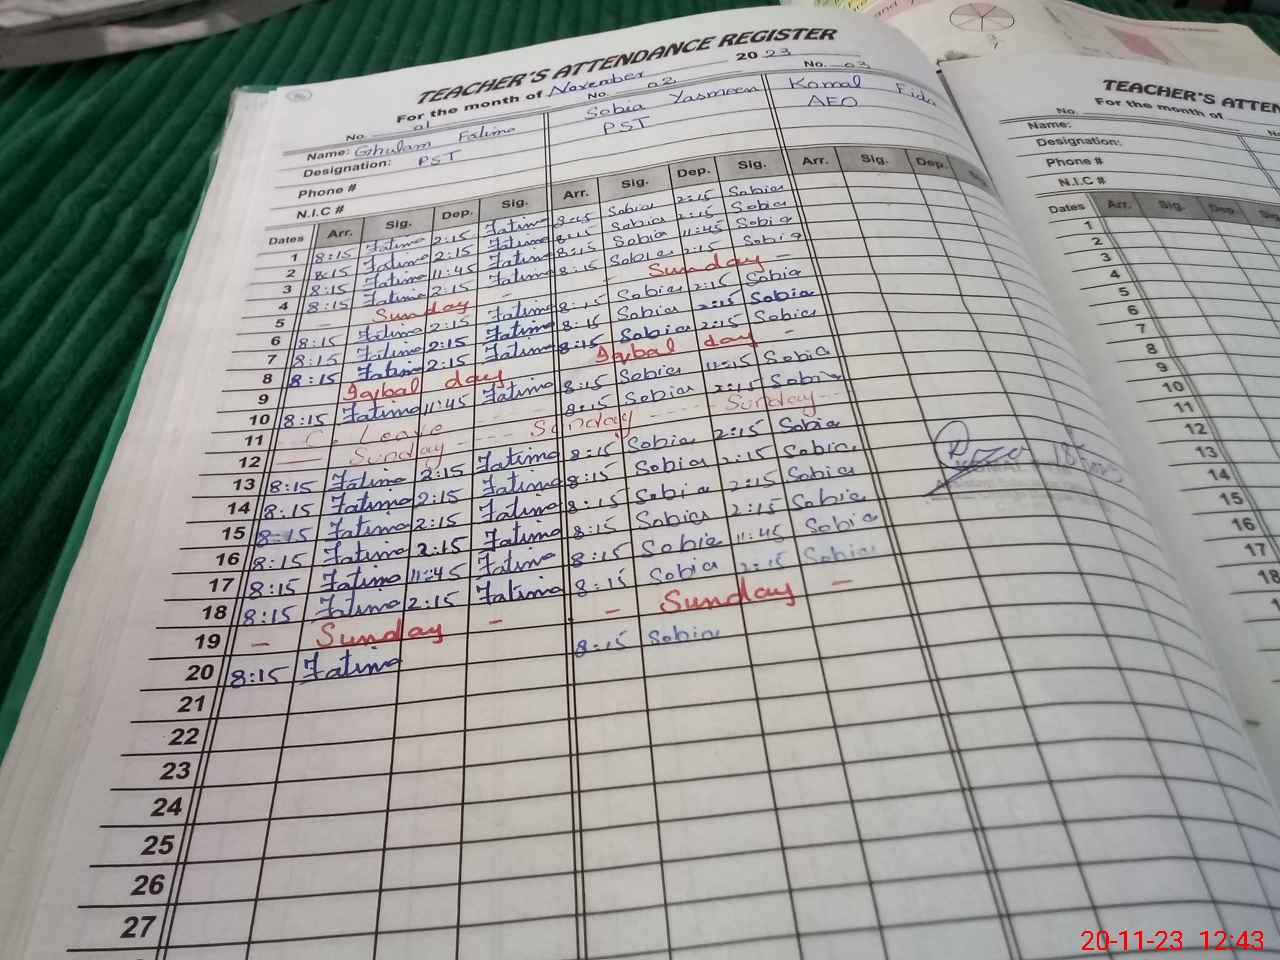 TEACHER'S ATTENDANCE REGISTER
For the month of November 2023
No. 01 No. 02 No. 03
Name: Ghulam Fatima Sobia Yasmeen Komal Fida
Designation: PST PST AEO
Phone #
N.I.C #
Dates Arr. Sig. Dep. Sig. Arr. Sig. Dep. Sig. Arr. Sig. Dep. Sig.
1 8:15 Fatima 2:15 Fatima 8:15 Sobia 2:15 Sobia
2 8:15 Fatima 2:15 Fatima 8:15 Sobia 2:15 Sobia
3 8:15 Fatima 11:45 Fatima 8:15 Sobia 11:45 Sobia
4 8:15 Fatima 2:15 Fatima 8:15 Sobia 2:15 Sobia
5 - Sunday - - Sunday -
6 8:15 Fatima 2:15 Fatima 8:15 Sobia 2:15 Sobia
7 8:15 Fatima 2:15 Fatima 8:15 Sobia 2:15 Sobia
8 8:15 Fatima 2:15 Fatima 8:15 Sobia 2:15 Sobia
9 Iqbal day Iqbal day -
10 8:15 Fatima 11:45 Fatima 8:15 Sobia 11:15 Sobia
11 C. Leave 8:15 Sobia 2:15 Sobia
12 Sunday Sunday Sunday
13 8:15 Fatima 2:15 Fatima 8:15 Sobia 2:15 Sobia
14 8:15 Fatima 2:15 Fatima 8:15 Sobia 2:15 Sobia
15 8:15 Fatima 2:15 Fatima 8:15 Sobia 2:15 Sobia
16 8:15 Fatima 2:15 Fatima 8:15 Sobia 2:15 Sobia
17 8:15 Fatima 11:45 Fatima 8:15 Sobia 11:45 Sobia
18 8:15 Fatima 2:15 Fatima 8:15 Sobia 2:15 Sobia
19 - Sunday - - Sunday -
20 8:15 Fatima 8:15 Sobia
21
22
23
24
25
26
27
KOMAL
TEACHER'S ATTEN
For the month of
No.
Name:
Designation:
Phone #
N.I.C #
Dates Arr. Sig. Dep. Sig.
1
2
3
4
5
6
7
8
9
10
11
12
13
14
15
16
17
18
20-11-23 12:43